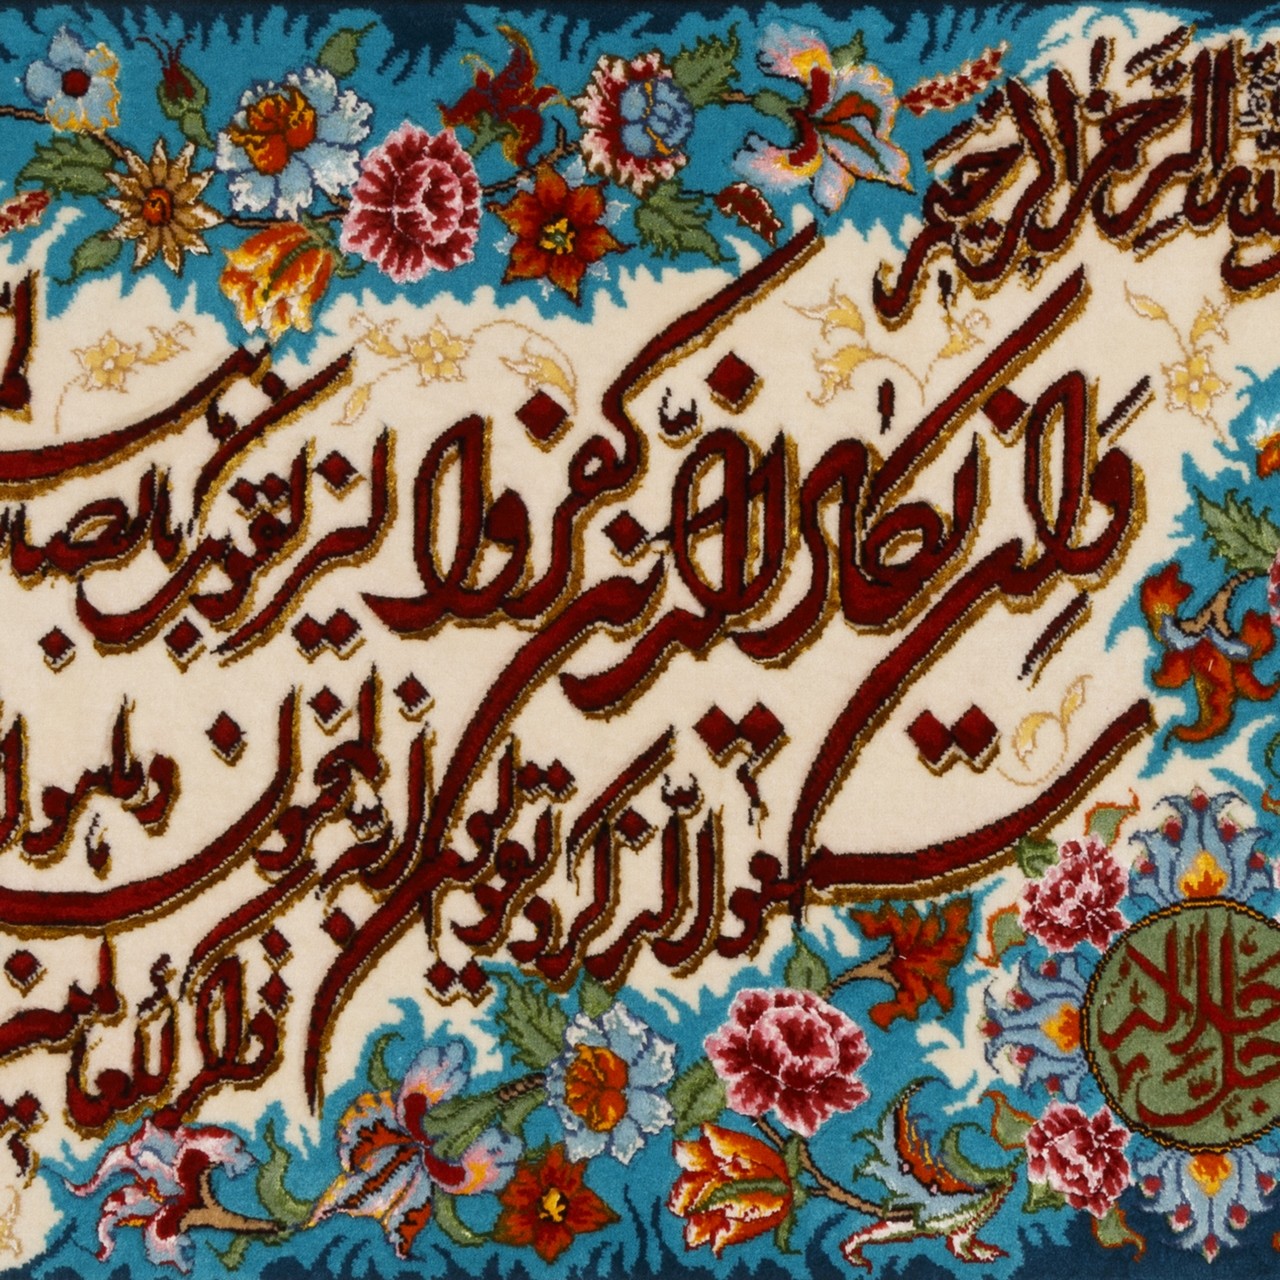 الله الرحمن الرحیم
وَاِن یَکادُ الَّذینَ کفروا لیزلقونک بابصا
سمعوا الذّکر و یقولون انّه لمجنون وما هو
ذکر للعالمین
الله جلّ جلاله